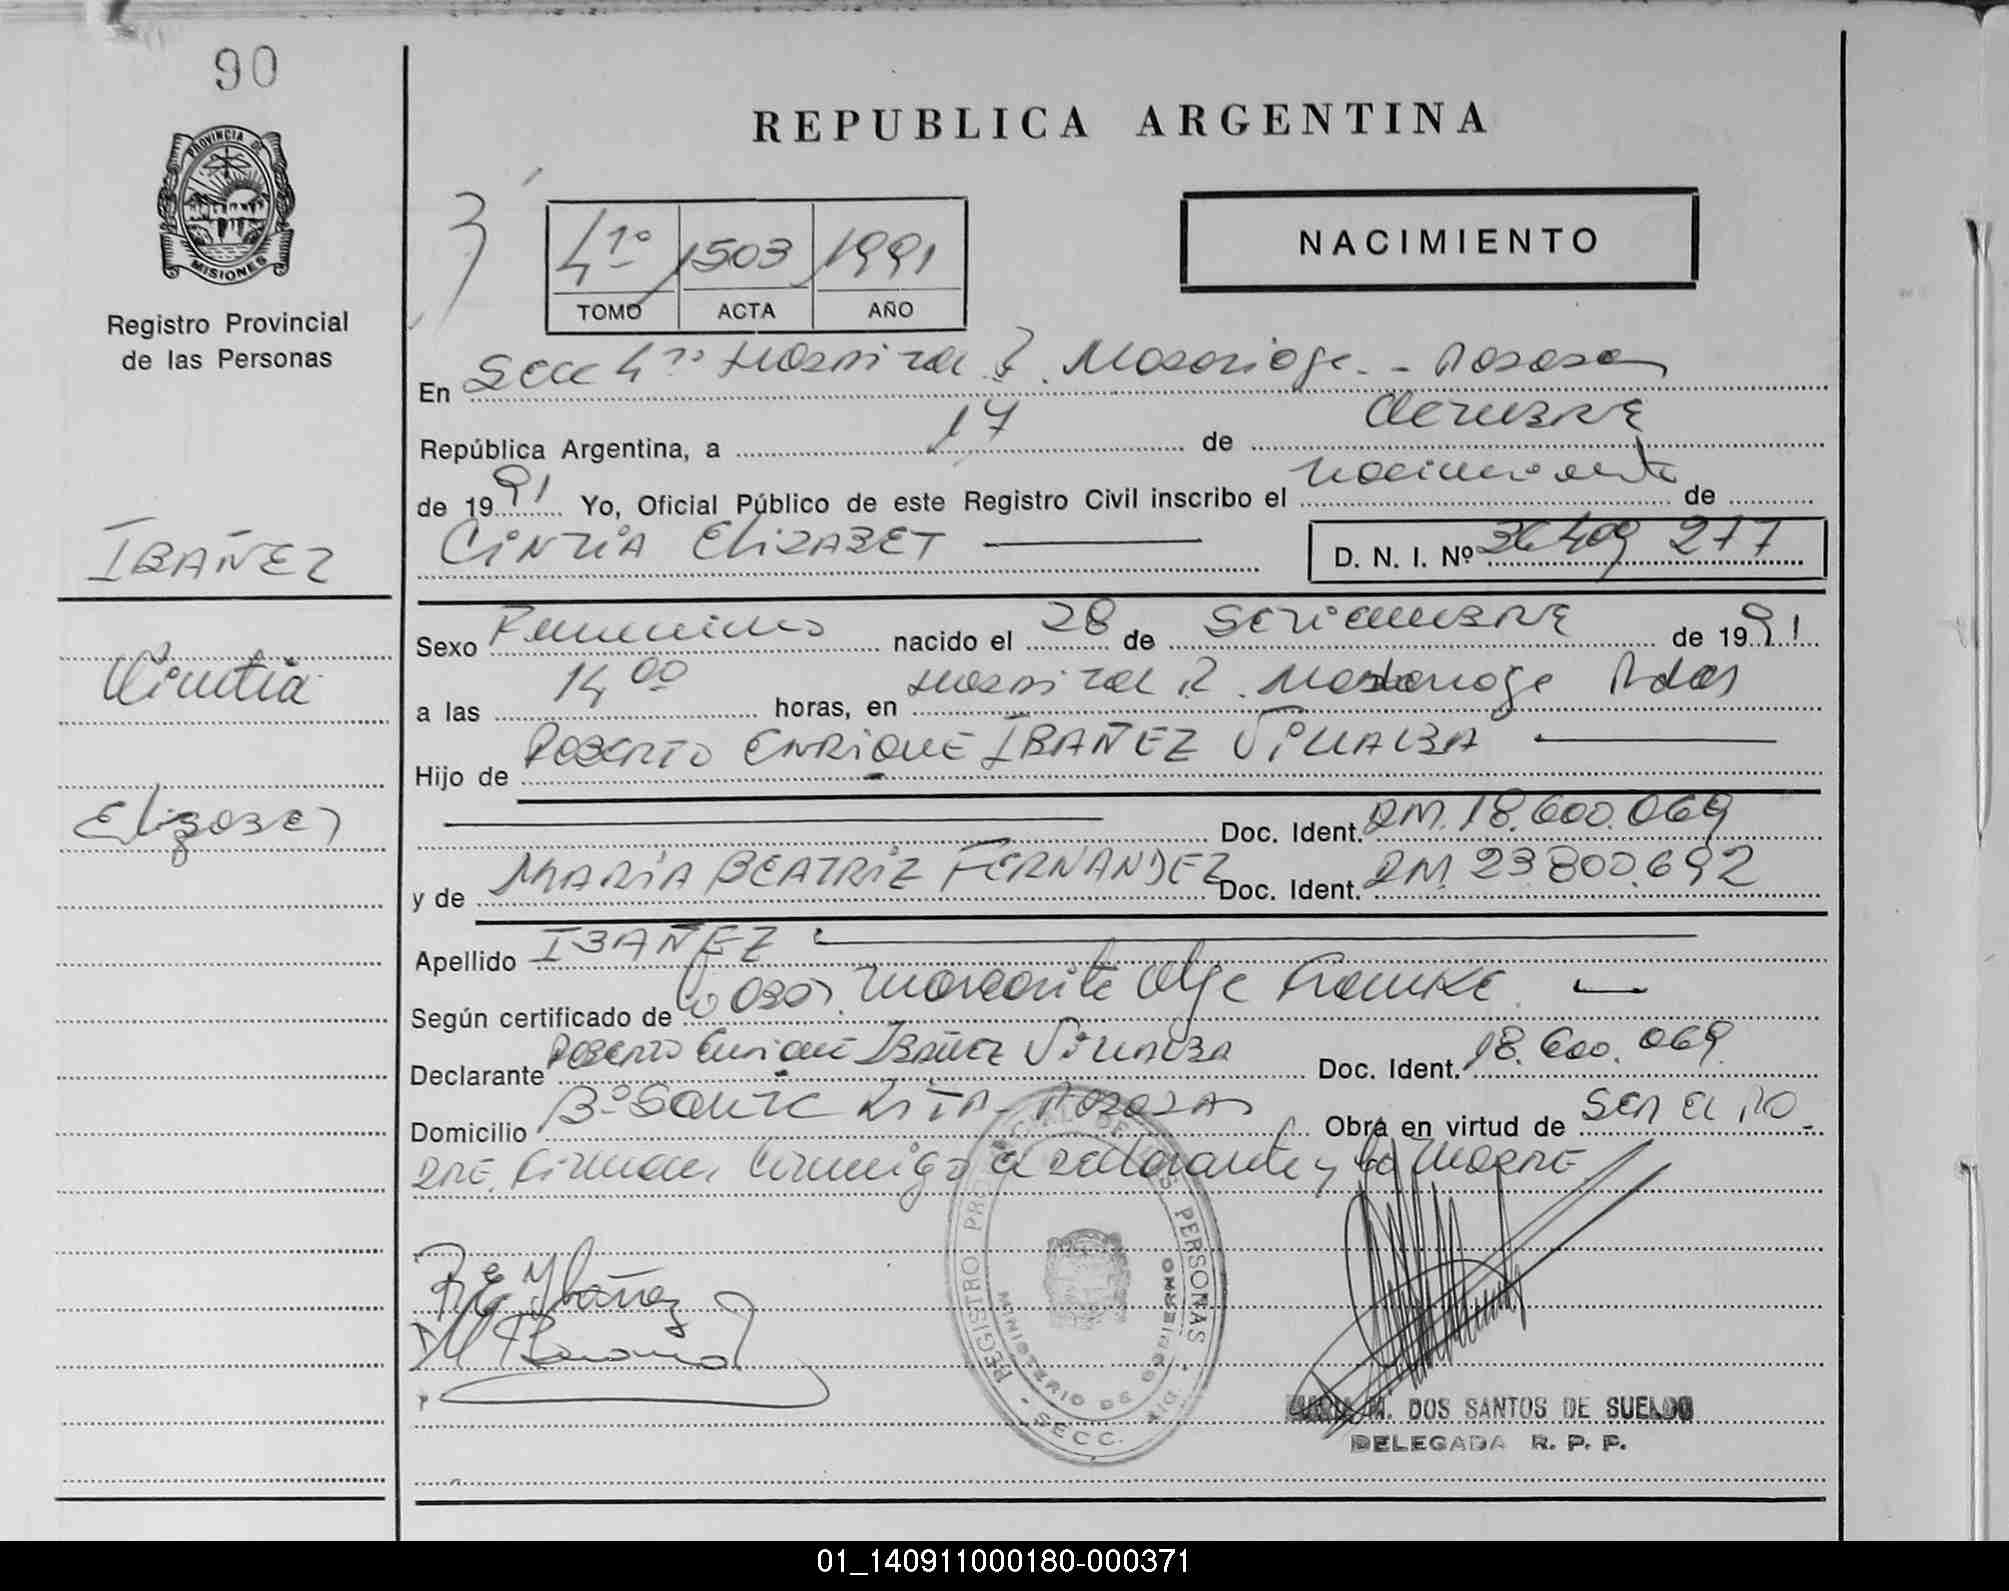 90
PROVINCIA DE
MISIONES
Registro Provincial
de las Personas
IBAÑEZ
Cintia
Elizabet
REPUBLICA ARGENTINA
4º 1503 1991
TOMO ACTA AÑO
NACIMIENTO
En Secc 4ta Hospital R. Madariaga - Posadas
República Argentina, a 17 de OCTUBRE
de 1991 Yo, Oficial Público de este Registro Civil inscribo el nacimiento de
CINTIA ELIZABET D. N. I. Nº 36.409 277
Sexo Femenino nacido el 28 de SETIEMBRE de 1991
a las 14 00 horas, en Hospital R. Madariaga Pdas
Hijo de ROBERTO ENRIQUE IBAÑEZ VILLALBA
Doc. Ident. DM. 18.600.069
y de MARIA BEATRIZ FERNANDEZ Doc. Ident. DM. 23.800.692
Apellido IBAÑEZ
Según certificado de Obst. Margarita Olga
Declarante Roberto Enrique IBAÑEZ VILLALBA Doc. Ident. 18.600.069
Domicilio Bº SANTA RITA - POSADAS Obra en virtud de SER EL PA-
DRE. Firman conmigo el declarante y la MADRE
R E Ybañez
REGISTRO PROVINCIAL DE LAS PERSONAS
MINISTERIO DE GOBIERNO
SECC.
M. DOS SANTOS DE SUELDO
DELEGADA R. P. P.
01_140911000180-000371